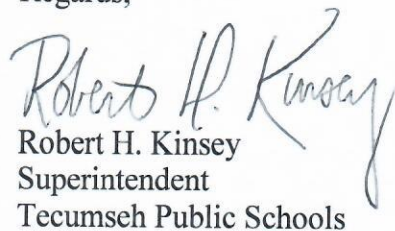 Regards,
Robert H. Kinsey
Robert H. Kinsey
Superintendent
Tecumseh Public Schools